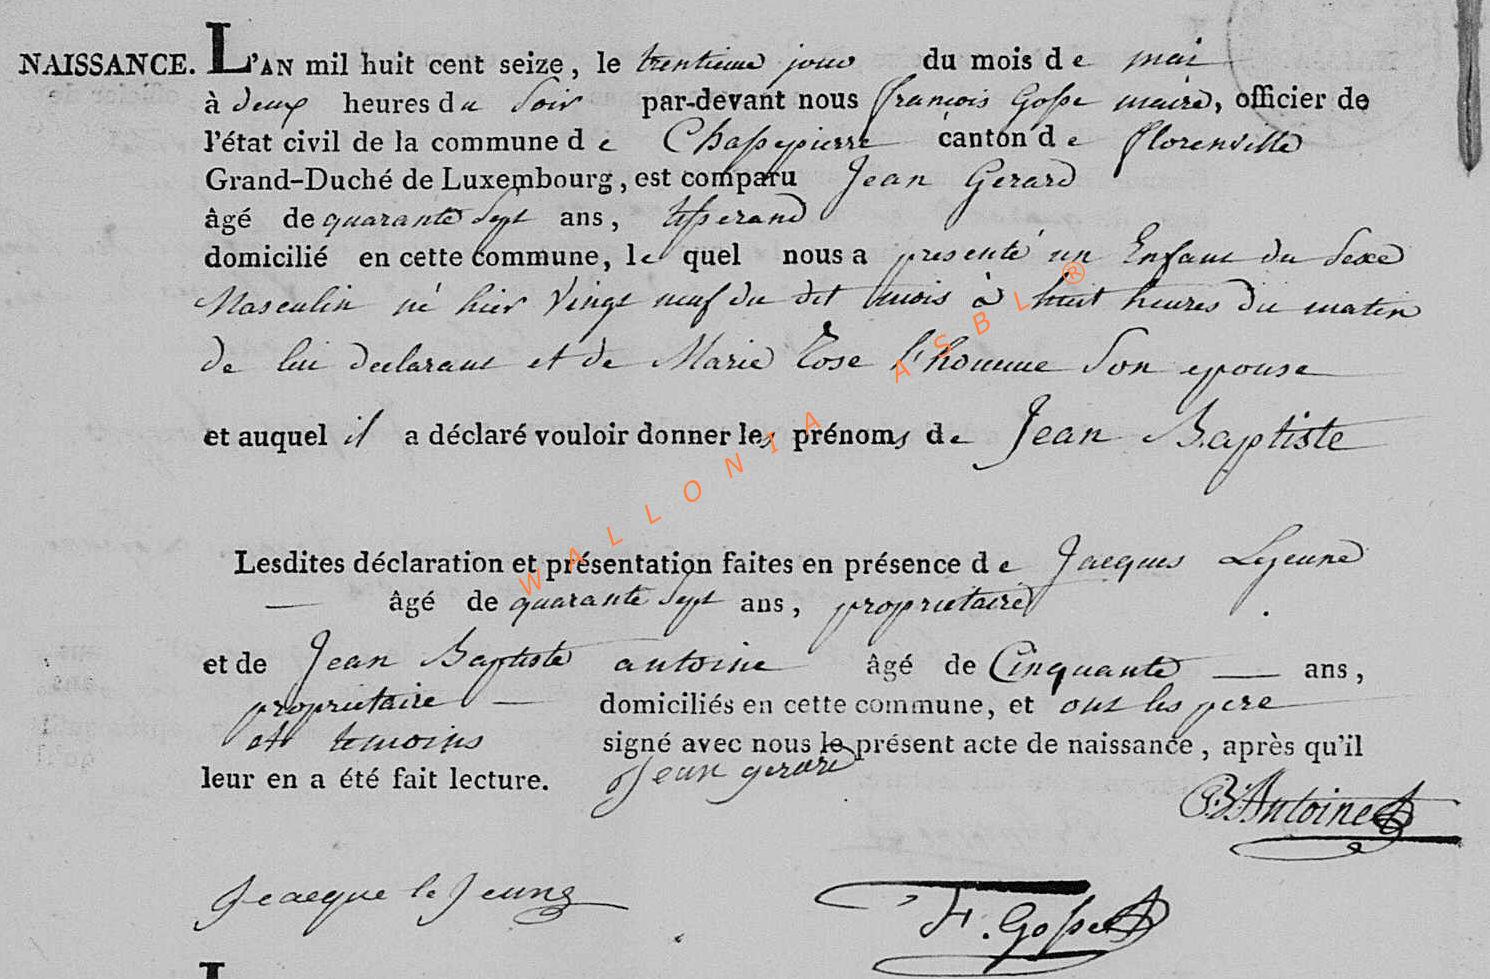 NAISSANCE. L'AN mil huit cent seize, le trentieme jour du mois de mai
à deux heures du soir par-devant nous françois Gosse maire, officier de
l'état civil de la commune de Chassepierre canton de florenville
Grand-Duché de Luxembourg, est comparu Jean Gerard
âgé de quarante sept ans, tisserand
domicilié en cette commune, le quel nous a presenté un Enfant du Sexe
Masculin né hier Vingt neuf du dit mois à huit heures du matin
de lui declarant et de Marie Rose l'homme Son epouse
et auquel il a déclaré vouloir donner les prénoms de Jean Baptiste
Lesdites déclaration et présentation faites en présence de Jacques Lejeune
âgé de quarante sept ans, proprietaire
et de Jean Baptiste antoine âgé de Cinquante ans,
proprietaire domiciliés en cette commune, et ont les pere
et temoins signé avec nous le présent acte de naissance, après qu'il
leur en a été fait lecture. Jean gerard
J.B. Antoine
Jeacque le Jeune
F. Gosse
WALLONIA ASBL ®